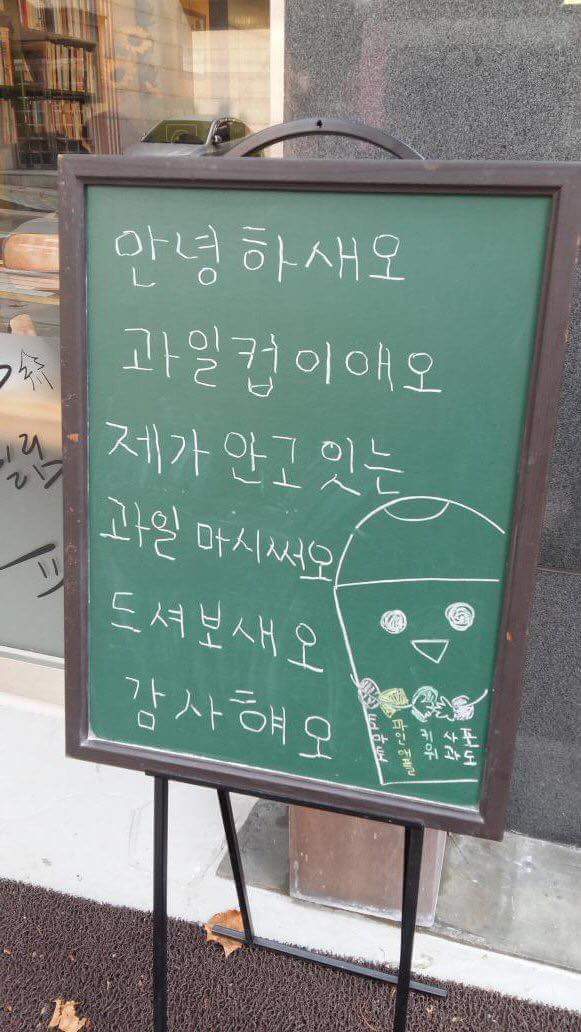 안녕하새오
과일컵이애오
제가 안고 잇는
과일 마시써오
드셔보새오
감사헤오
토마토
파인애플
키위
사과
포도